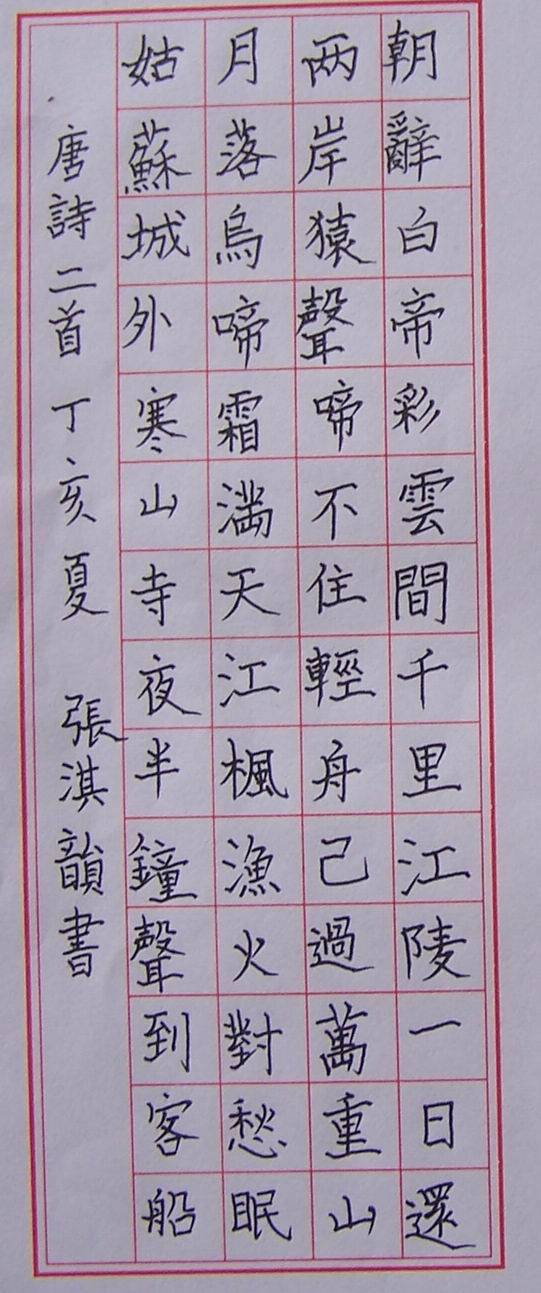 朝辭白帝彩雲間千里江陵一日還
两岸猿聲啼不住輕舟己過萬重山
月落烏啼霜満天江楓漁火對愁眠
姑蘇城外寒山寺夜半鐘聲到客船
唐詩二首 丁亥夏 張淇韻書